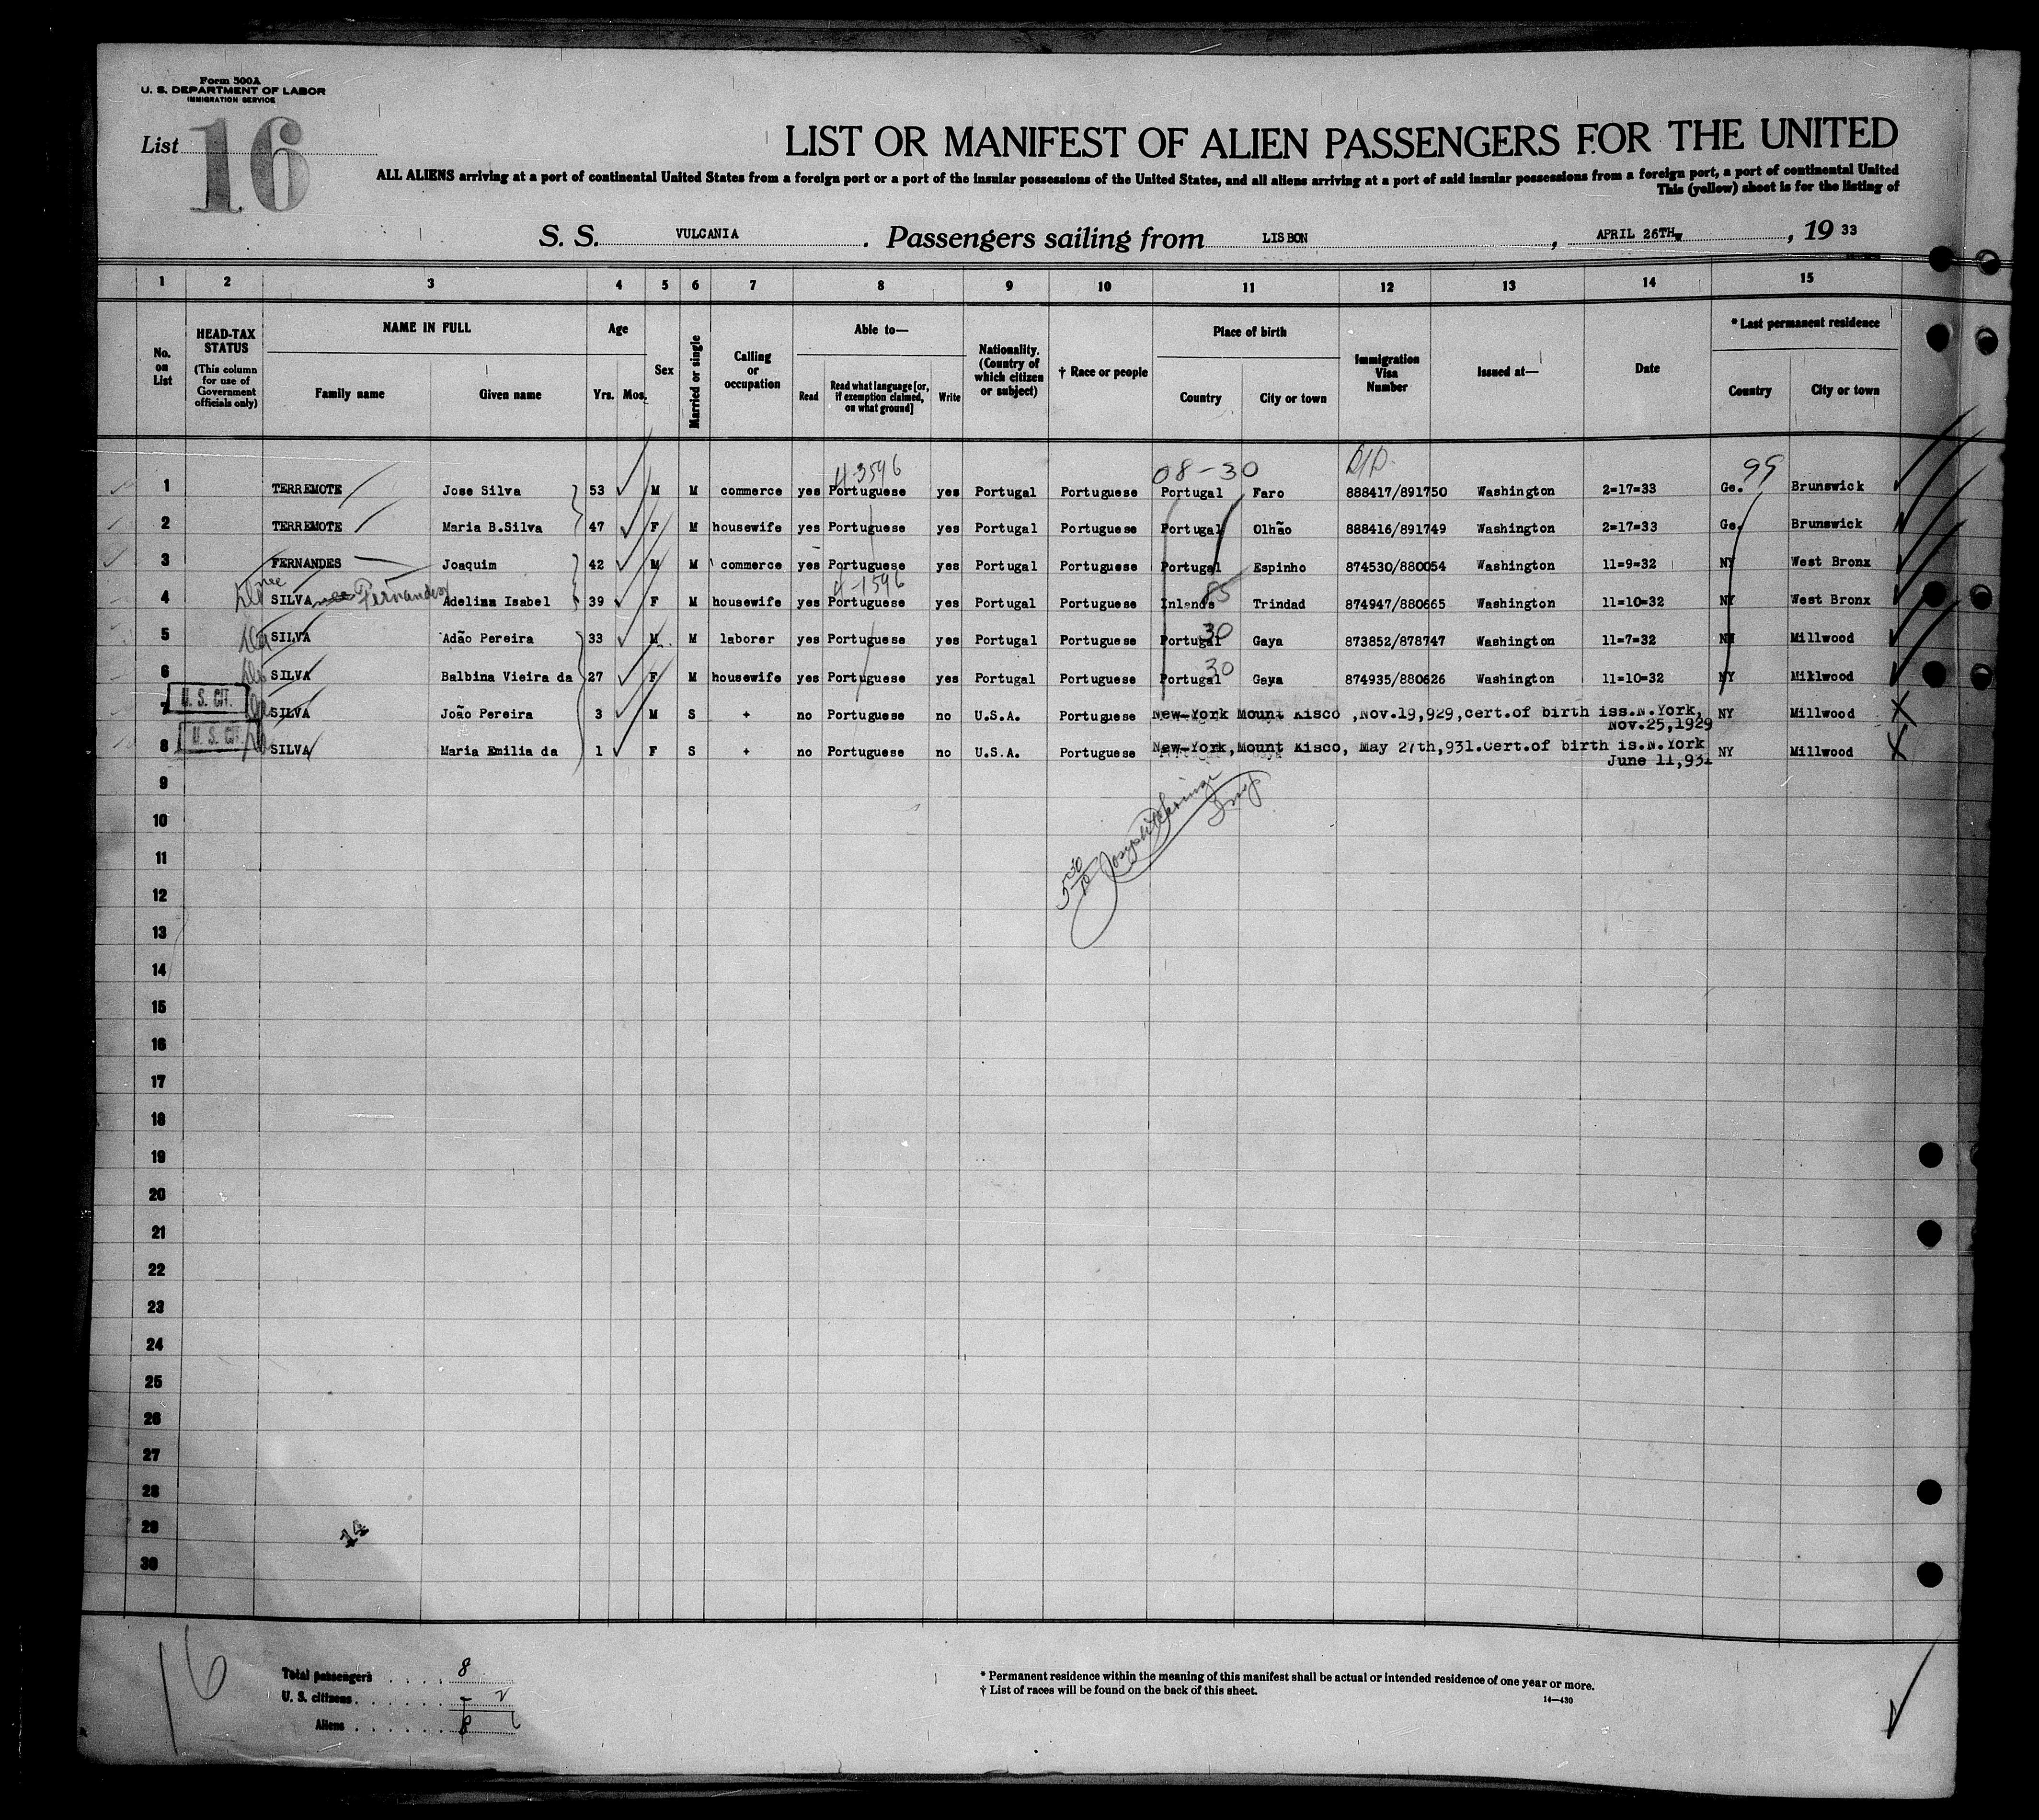 Form 500A
U. S. DEPARTMENT OF LABOR
IMMIGRATION SERVICE
List 16
LIST OR MANIFEST OF ALIEN PASSENGERS FOR THE UNITED
ALL ALIENS arriving at a port of continental United States from a foreign port or a port of the insular possessions of the United States, and all aliens arriving at a port of said insular possessions from a foreign port, a port of continental United
This (yellow) sheet is for the listing of
S. S. VULCANIA . Passengers sailing from LISBON , APRIL 26TH , 19 33
1 2 3 4 5 6 7 8 9 10 11 12 13 14 15
No. on List
HEAD-TAX STATUS
(This column for use of Government officials only)
NAME IN FULL
Family name Given name
Age
Yrs. Mos.
Sex
Married or single
Calling or occupation
Able to—
Read
Read what language [or, if exemption claimed, on what ground]
Write
Nationality. (Country of which citizen or subject)
† Race or people
Place of birth
Country City or town
Immigration Visa Number
Issued at—
Date
* Last permanent residence
Country City or town
4-3596 08-30 99
1 TERREMOTE Jose Silva 53 M M commerce yes Portuguese yes Portugal Portuguese Portugal Faro 888417/891750 Washington 2=17=33 Ge. Brunswick
2 TERREMOTE Maria B.Silva 47 F M housewife yes Portuguese yes Portugal Portuguese Portugal Olhão 888416/891749 Washington 2=17=33 Ge. Brunswick
3 FERNANDES Joaquim 42 M M commerce yes Portuguese yes Portugal Portuguese Portugal Espinho 874530/880054 Washington 11=9=32 NY West Bronx
nee Fernandes 4-1596 85
4 SILVA Adelina Isabel 39 F M housewife yes Portuguese yes Portugal Portuguese Inlands Trindad 874947/880665 Washington 11=10=32 NY West Bronx
5 SILVA Adão Pereira 33 M M laborer yes Portuguese yes Portugal Portuguese Portugal 30 Gaya 873852/878747 Washington 11=7=32 NY Millwood
6 SILVA Balbina Vieira da 27 F M housewife yes Portuguese yes Portugal Portuguese Portugal 30 Gaya 874935/880626 Washington 11=10=32 NY Millwood
U. S. CIT.
7 SILVA João Pereira 3 M S + no Portuguese no U.S.A. Portuguese New-York Mount Kisco ,Nov.19,929,cert.of birth iss.N.York, NY Millwood
Nov.25,1929
U. S. CIT.
8 SILVA Maria Emilia da 1 F S + no Portuguese no U.S.A. Portuguese New-York,Mount Kisco, May 27th,931.Cert.of birth is.N.York NY Millwood
June 11,931
9
10
11
12
13
14
15
16
17
18
19
20
21
22
23
24
25
26
27
28
29
30
14
16
Total passengers 8
U. S. citizens - 2
Aliens 8 6
* Permanent residence within the meaning of this manifest shall be actual or intended residence of one year or more.
† List of races will be found on the back of this sheet.
14—430